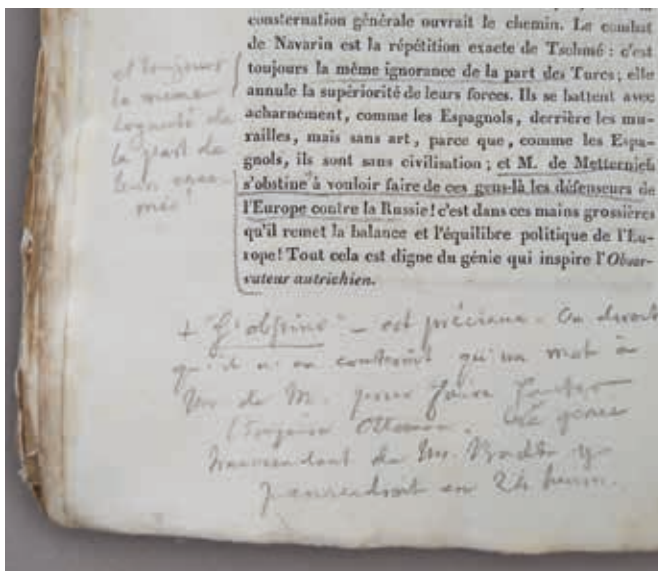 consternation générale ouvrait le chemin. Le combat
de Navarin est la répétition exacte de Tschmé : c'est
toujours la même ignorance de la part des Turcs ; elle
annule la supériorité de leurs forces. Ils se battent avec
acharnement, comme les Espagnols, derrière les mu-
railles, mais sans art, parce que, comme les Espa-
gnols, ils sont sans civilisation ; et M. de Metternich
s'obstine à vouloir faire de ces gens-là les défenseurs de
l'Europe contre la Russie ! c'est dans ces mains grossières
qu'il remet la balance et l'équilibre politique de l'Eu-
rope ! Tout cela est digne du génie qui inspire l'Obser-
vateur autrichien.
et toujours
la même
loyauté de
la part de
leur enne-
mis !
+ "S'obstine" – est précieux. On dirait
qu'il n'en qu'un mot à
de M. pour faire
l'Empire Ottoman. Le génie
de Mr.
en 24 heures.